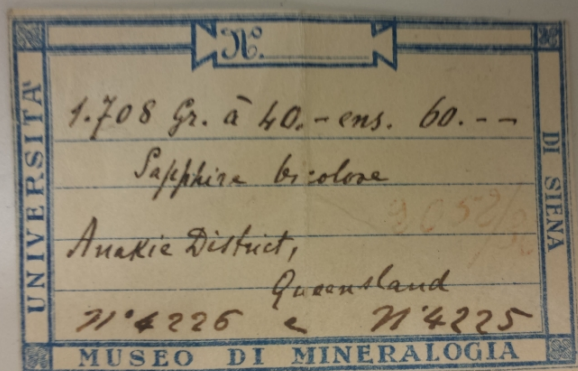 Nº.
UNIVERSITÀ
1.708 Gr. à 40.- ens. 60.--
Sapphire bicolore
Anakie District,
Queensland
Nº 4226 e Nº 4225
DI SIENA
MUSEO DI MINERALOGIA